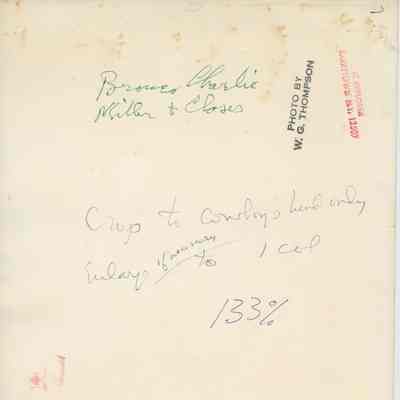 Bronco Charlie
Miller & Closes
PHOTO BY
W. G. THOMPSON
Crop to Cowboy's head only
Enlarge if necessary to 1 col
133%